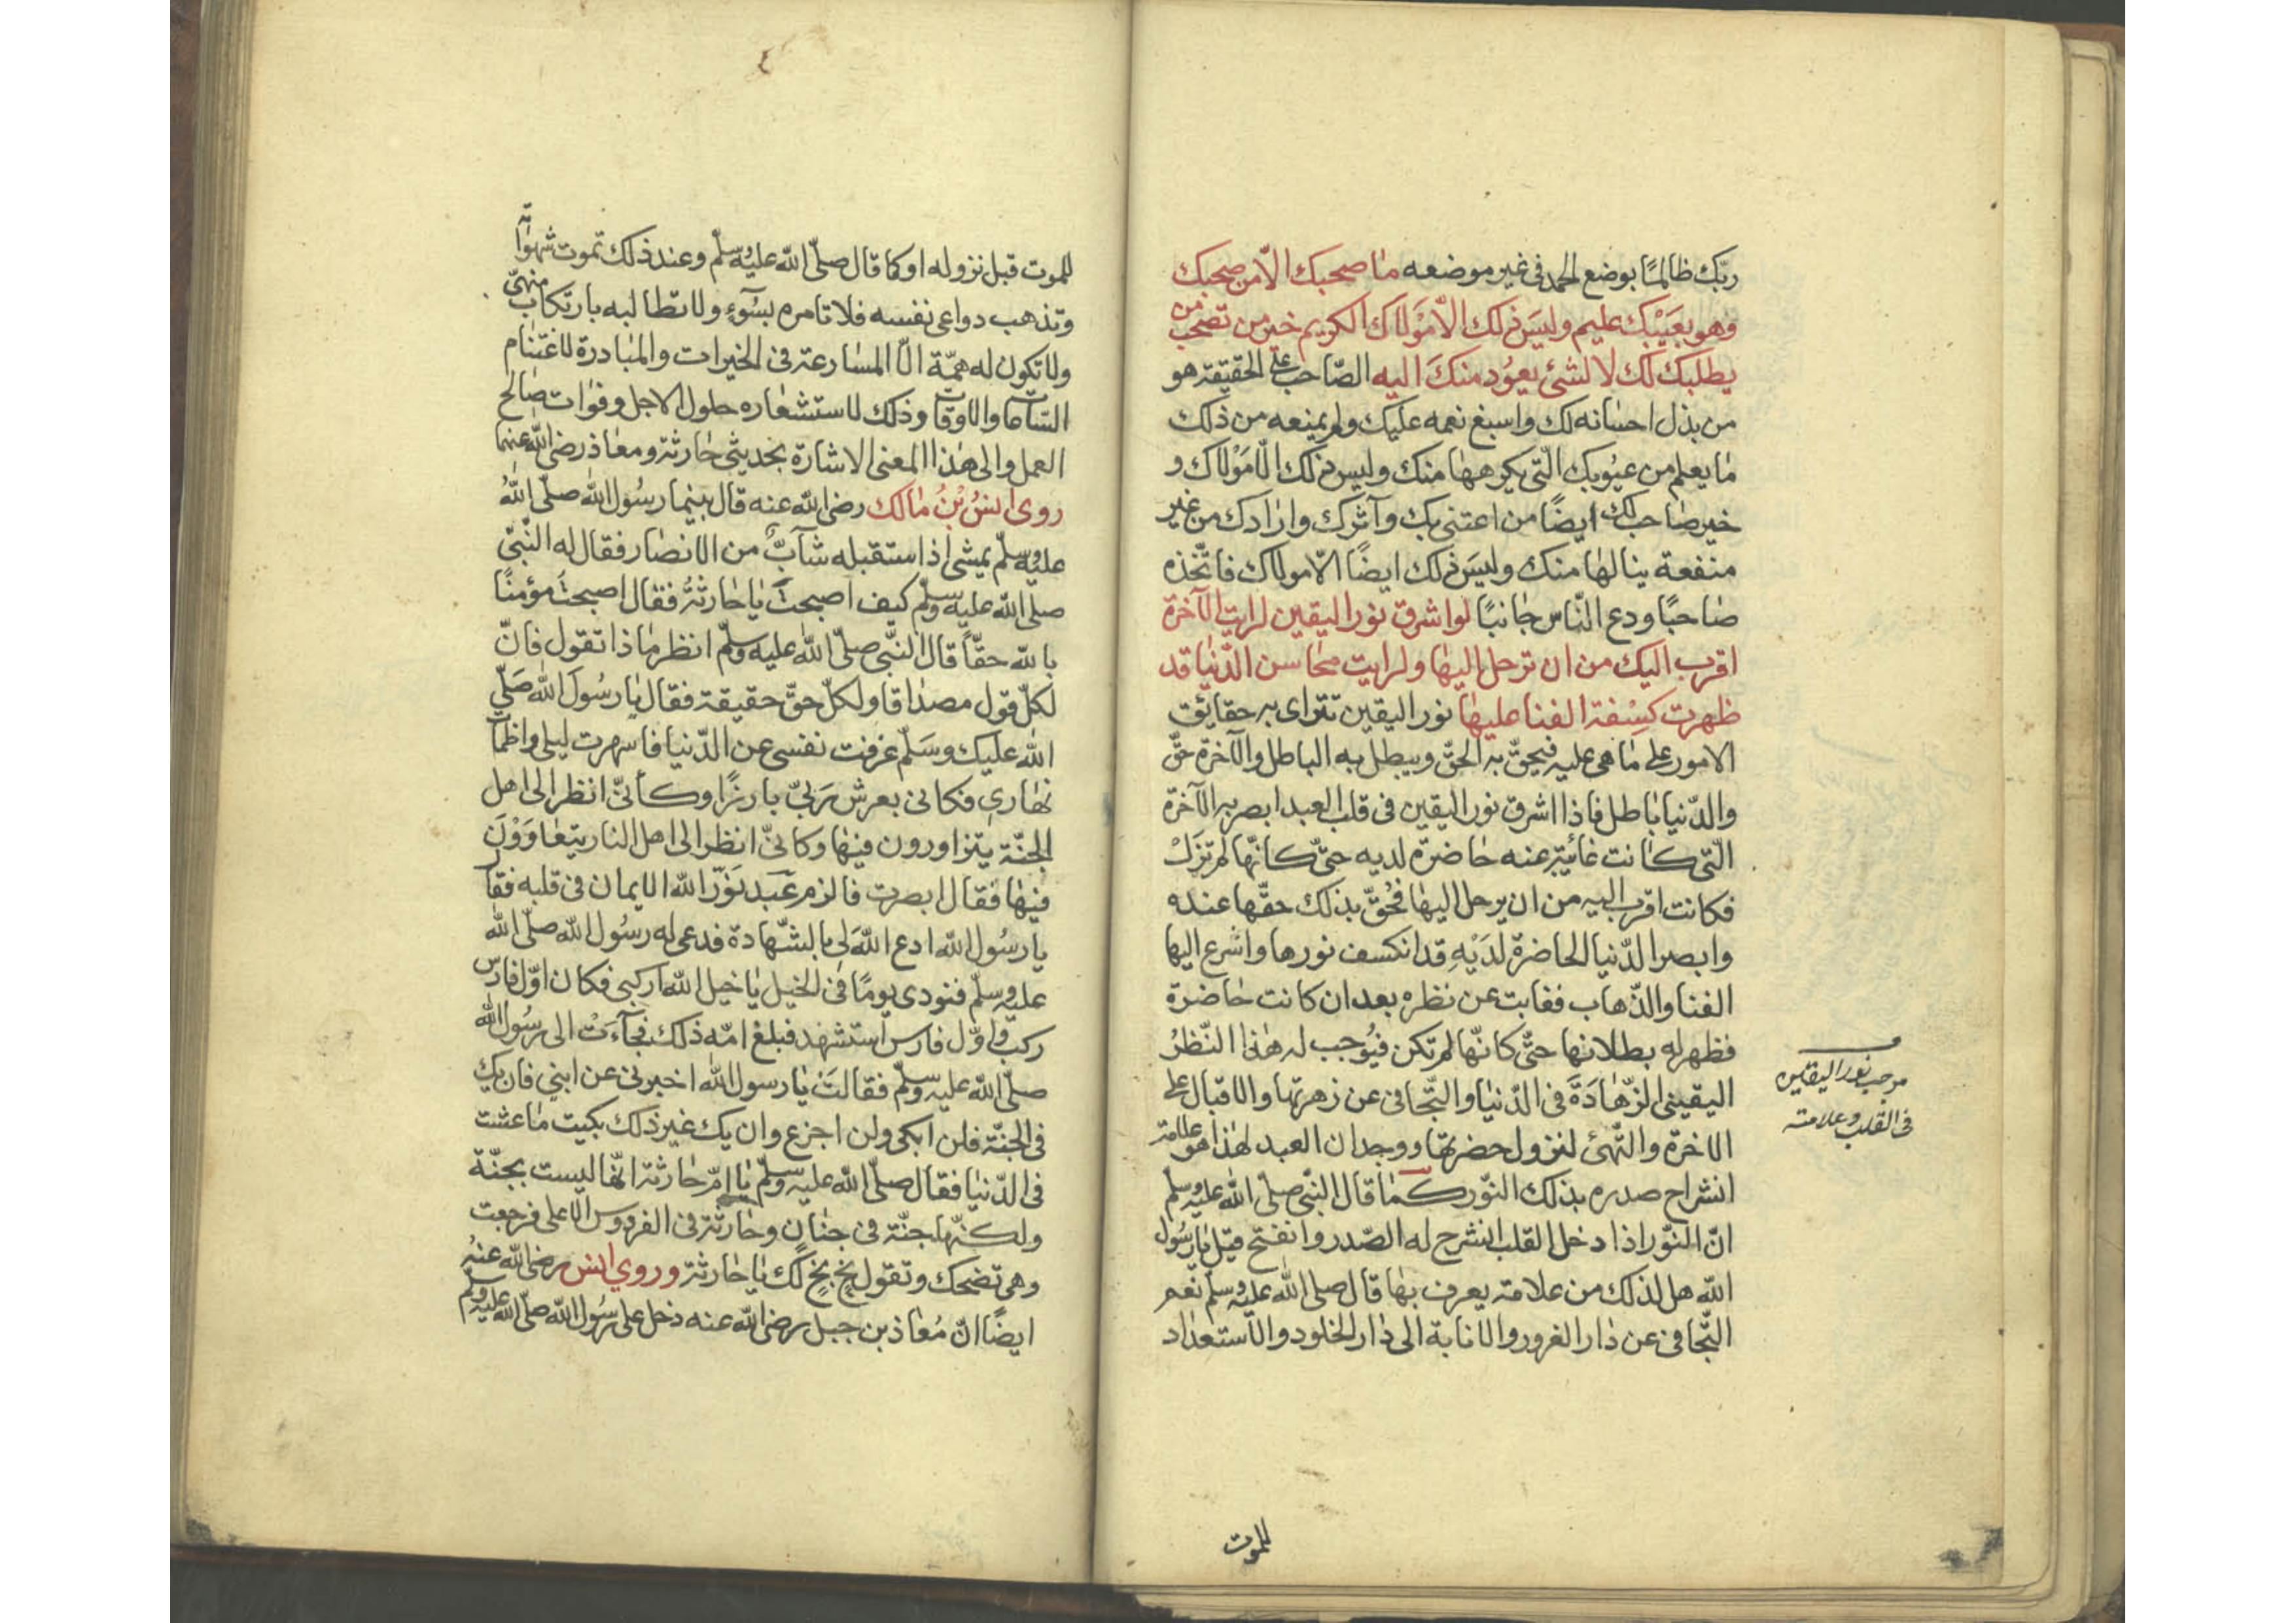 ربّك ظالمًا بوضع الحمد فى غير موضعه مٰا صحبك الّا من صحبك
وهو بعَيْبك عليم وليسَ ذلك الّا مَوْلاك الكريم خير من تصحب من
يطلبك لك لا لشئ يعوُد منكَ اليه الصّاحب على الحقيقة هو
من بذل احسٰانه لك واسبغ نعمه عليك ولم يمنعه من ذلك
مٰا يعلم من عيُوبك الّتى يكرهها منك وليس ذلك الّا مَوْلاك و
خير صٰاحب لك ايضًا من اعتنى بك وآثرك وارٰادك من غير
منفعة ينالهٰا منك وليسَ ذلك ايضًا الّا مولاك فاتّخذه
صٰاحبًا ودع النّاس جٰانبًا لو اشرق نور اليقين لرايت الآخرة
اقرب اليك من ان ترحل اليهٰا ولرايت محٰاسن الدّنيٰا قد
ظهرت كِسْفة الفنا عليهٰا نور اليقين تتراى به حقايق
الامور على مٰا هى عليه فيحقّ به الحقّ ويبطل به الباطل والآخرة حقّ
والدّنيا بٰاطل فاذا اشرق نور اليقين فى قلب العبد ابصر به الآخرة
الّتى كٰانت غائبة عنه حٰاضرة لديه حتّى كانّها لم تزَلْ
فكانت اقرب اليه من ان يرحل اليهٰا فحُقّ بذلك حقّها عنده
وابصر الدّنيا الحاضرة لدَيْهِ قد انكسف نورها واشرع اليها
الفنا والذّهاب فغابت عن نظره بعد ان كانت حٰاضرة
فظهر له بطلانها حتّى كانّها لم تكن فيُوجب له هٰذا النّظرُ
اليقينى الزّهٰادَةَ فى الدّنيٰا والتّجافى عن زهرتها والاقبال على
الاخرة والتّهئ لنزول حضرتها ووجدان العبد لهٰذا هو علامة
انشراح صدره بذلك النّور كمٰا قال النّبى صلّى الله عليه وسلّم
انّ النّور اذا دخل القلب انشرح له الصّدر وانفتح قيل يٰا رسُول
الله هل لذلك من علامة يعرف بهٰا قال صلى الله عليه وسلّم نعم
التّجافى عن دٰار الغرور والانابة الى دٰار الخلود والاستعدٰاد
موجب نور اليقين
فى القلب وعلامته
للموت
للموت قبل نزوله او كما قال صلّى الله عليه وسلّم وعند ذلك تموت شهوٰاته
وتذهب دواعى نفسه فلا تامره بسُوءٍ ولا تطالبه بارتكاب منهىّ
ولا تكون له همّة الّا المسٰارعة فى الخيرات والمبٰادرة لاغتنام
السّاعات والاوقات وذلك لاستشعٰاره حلول الاجل وفوٰات صٰالح
العمل والى هٰذا المعنى الاشارة بحديثى حٰارثة ومعٰاذ رضى الله عنهما
روى انسُ بْنُ مٰالك رضى الله عنه قال بينما رسُول الله صلّى اللهُ
عليه وسلّم يمشى اذ استقبله شٰابٌّ من الانصٰار فقال له النّبىّ
صلى الله عليه وسلّم كيف اصبحتَ يٰا حٰارثةُ فقال اصبحتُ مؤمنًا
بالله حقّاً قال النّبى صلّى الله عليه وسلّم انظر مٰا ذا تقول فانّ
لكلّ قول مصدٰاقا ولكلّ حقّ حقيقة فقال يٰا رسُولَ الله صَلّى
الله عليك وسَلّم عزفت نفسى عن الدّنيا فاسهرت ليلى واظمأت
نهٰارى فكانى بعرش رَبىّ بارزًا وكأنىّ انظر الى اهل
الجنّة يتزاورون فيهٰا وكانىّ انظر الى اهل النار يتعٰاوَوْنَ
فيهٰا فقال ابصرت فالزم عَبد نَوّر الله الايمان فى قلبه فقال
يا رسُول الله ادع اللهَ لى بالشّهادة فدعى له رسُول الله صلّى الله
عليه وسلّم فنودى يومًا فى الخيل يٰا خيل الله اركبى فكان اوّل فارس
ركب واوّل فارس استشهد فبلغ امّه ذلك فجآءَتْ الى رسُول الله
صلّى الله عليه وسلّم فقالتَ يٰا رسول الله اخبرنى عن ابنى فان يك
فى الجنّة فلن ابكى ولن اجزع وان يك غير ذلك بكيت مٰا عشت
فى الدّنيٰا فقال صلّى الله عليه وسلّم يٰا امّ حٰارثة انّها ليست بجنّة
ولكنّها جنّة فى جنٰان وحٰارثة فى الفردوس الاعلى فرجعت
وهى تضحك وتقول بخٍ بخٍ لك يٰا حٰارثة وروي انس رضى الله عنهُ
ايضًا انّ مُعٰاذ بن جبل رضى الله عنه دخل على رسُول الله صلّى الله عليه وسلم